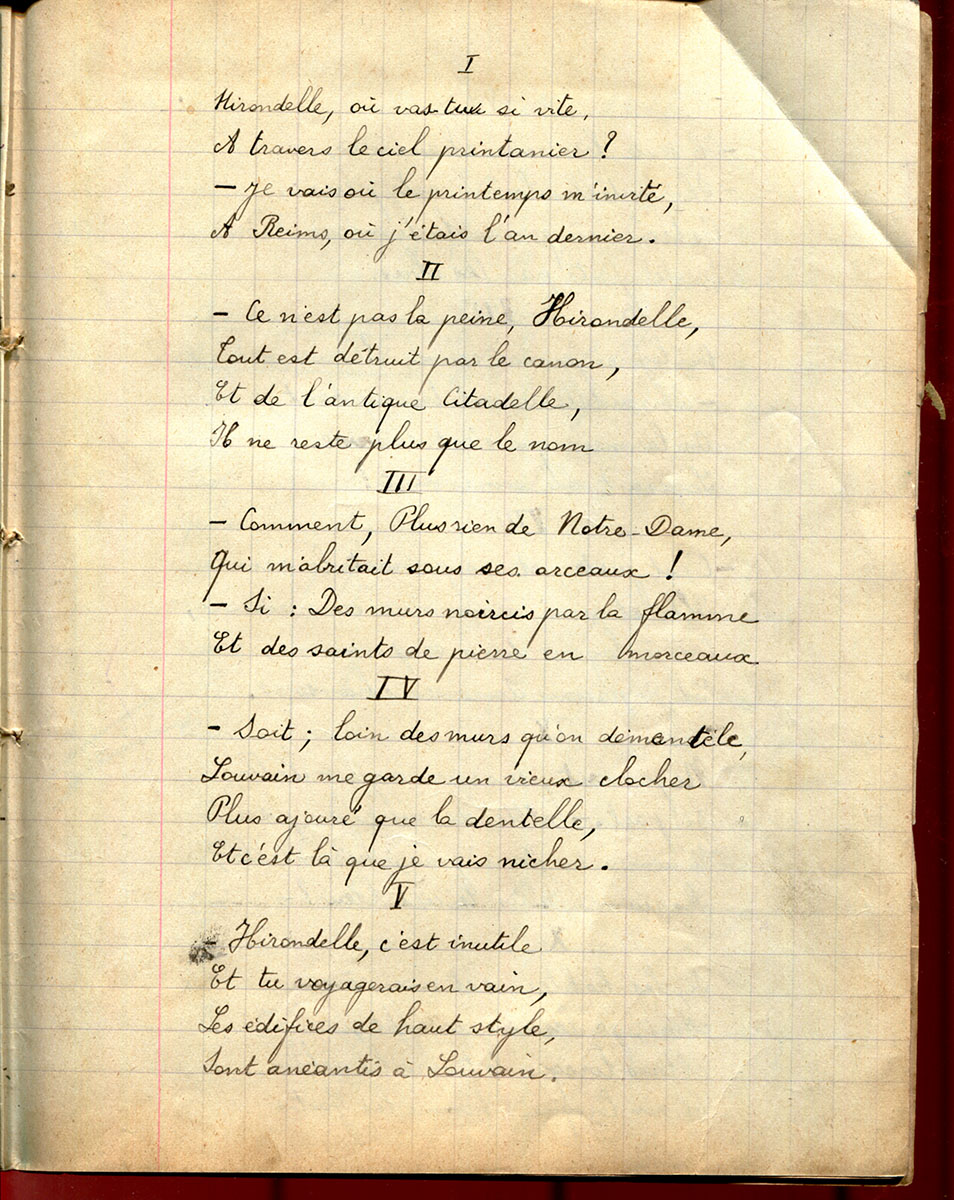 I
Hirondelle, où vas-tu si vite,
A travers le ciel printanier ?
– Je vais où le printemps m'invite,
A Reims, où j'étais l'an dernier.
II
– Ce n'est pas la peine, Hirondelle,
Tout est détruit par le canon,
Et de l'antique Citadelle,
Il ne reste plus que le nom
III
– Comment, Plus rien de Notre-Dame,
Qui m'abritait sous ses arceaux !
– Si : Des murs noircis par la flamme
Et des saints de pierre en morceaux
IV
– Soit ; loin des murs qu'on démentèle,
Louvain me garde un vieux clocher
Plus ajouré que la dentelle,
Et c'est là que je vais nicher.
V
– Hirondelle, c'est inutile
Et tu voyagerais en vain,
Les édifices de haut style,
Sont anéantis à Louvain.